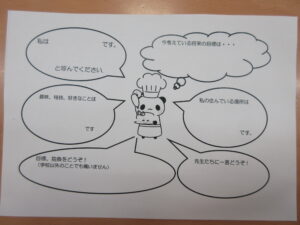 私は　　　　　　　です。
と呼んでください
今考えている将来の目標は・・・
趣味、特技、好きなことは
です
私の住んでいる箇所は
です。
目標、抱負をどうぞ！
(学校以外のことでも構いません)
先生たちに一言どうぞ！